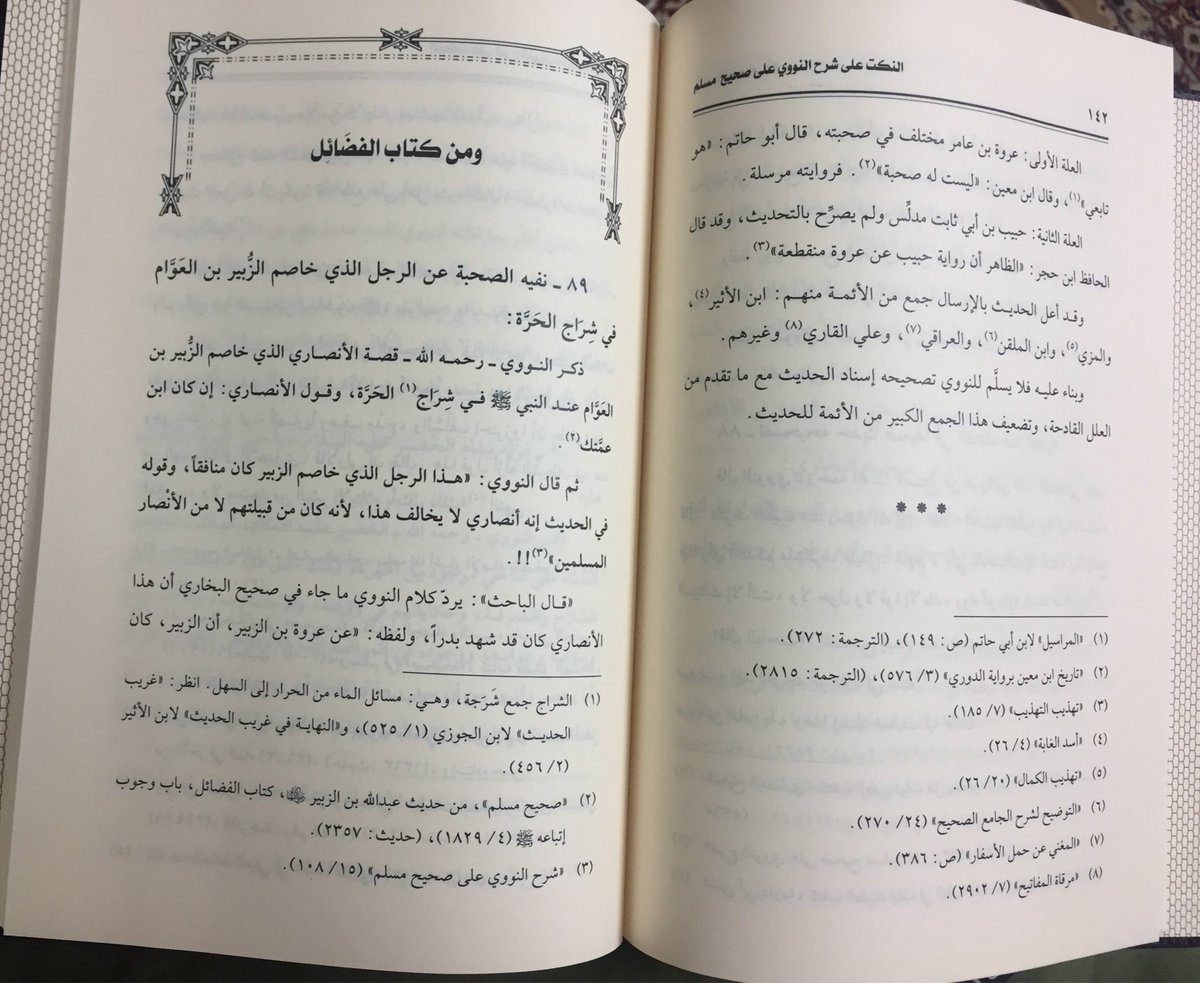 النكت على شرح النووي على صحيح مسلم
١٤٢
العلة الأولى: عروة بن عامر مختلف في صحبته، قال أبو حاتم: «هو
تابعي»(١)، وقال ابن معين: «ليست له صحبة»(٢). فروايته مرسلة.
العلة الثانية: حبيب بن أبي ثابت مدلِّس ولم يصرِّح بالتحديث، وقد قال
الحافظ ابن حجر: «الظاهر أن رواية حبيب عن عروة منقطعة»(٣).
وقد أعل الحديث بالإرسال جمع من الأئمة منهم: ابن الأثير(٤)،
والمزي(٥)، وابن الملقن(٦)، والعراقي(٧)، وعلي القاري(٨) وغيرهم.
وبناء عليه فلا يسلَّم للنووي تصحيحه إسناد الحديث مع ما تقدم من
العلل القادحة، وتضعيف هذا الجمع الكبير من الأئمة للحديث.
* * *
(١) «المراسيل» لابن أبي حاتم (ص: ١٤٩)، (الترجمة: ٢٧٢).
(٢) «تاريخ ابن معين برواية الدوري» (٣/ ٥٧٦)، (الترجمة: ٢٨١٥).
(٣) «تهذيب التهذيب» (٧/ ١٨٥).
(٤) «أسد الغابة» (٤/ ٢٦).
(٥) «تهذيب الكمال» (٢٠/ ٢٦).
(٦) «التوضيح لشرح الجامع الصحيح» (٢٤/ ٢٧٠).
(٧) «المغني عن حمل الأسفار» (ص: ٣٨٦).
(٨) «مرقاة المفاتيح» (٧/ ٢٩٠٢).
ومن كتاب الفضَائل
٨٩ ـ نفيه الصحبة عن الرجل الذي خاصم الزُّبير بن العَوَّام
في شِرَاج الحَرَّة:
ذكر النووي ـ رحمه الله ـ قصة الأنصاري الذي خاصم الزُّبير بن
العَوَّام عند النبي ﷺ في شِرَاج(١) الحَرَّة، وقول الأنصاري: إن كان ابن
عمَّتك(٢).
ثم قال النووي: «هذا الرجل الذي خاصم الزبير كان منافقاً، وقوله
في الحديث إنه أنصاري لا يخالف هذا، لأنه كان من قبيلتهم لا من الأنْصار
المسلمين»(٣)!!.
«قال الباحث»: يردّ كلام النووي ما جاء في صحيح البخاري أن هذا
الأنصاري كان قد شهد بدراً، ولفظه: «عن عروة بن الزبير، أن الزبير، كان
(١) الشراج جمع شَرَجة، وهي: مسائل الماء من الحرار إلى السهل. انظر: «غريب
الحديث» لابن الجوزي (١/ ٥٢٥)، و«النهاية في غريب الحديث» لابن الأثير
(٢/ ٤٥٦).
(٢) «صحيح مسلم»، من حديث عبدالله بن الزبير ، كتاب الفضائل، باب وجوب
إتباعه ﷺ (٤/ ١٨٢٩)، (حديث: ٢٣٥٧).
(٣) «شرح النووي على صحيح مسلم» (١٥/ ١٠٨).